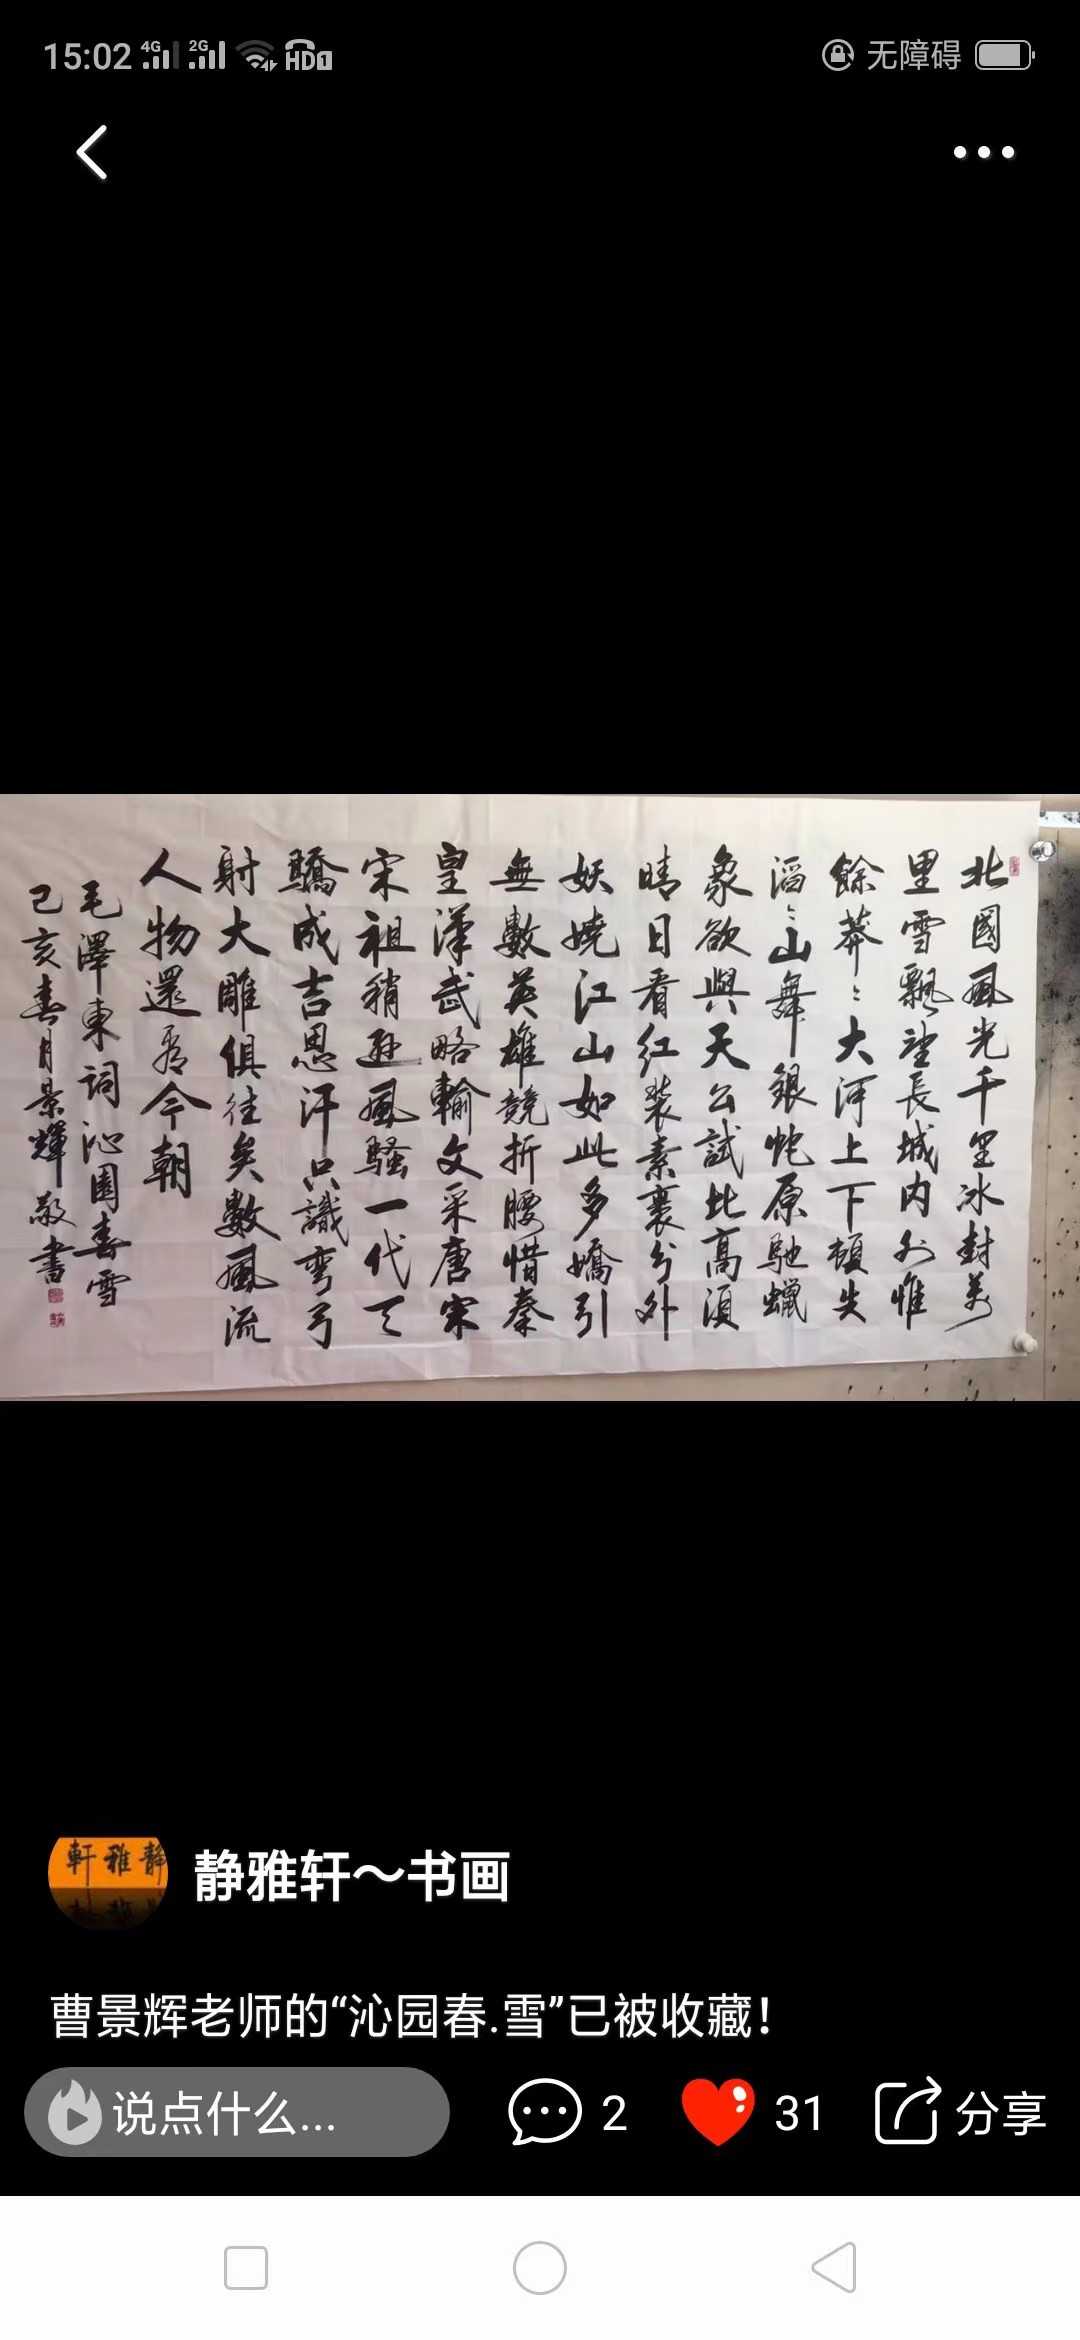 15:02 4G 2G HD1 无障碍
北國風光千里冰封萬
里雪飄望長城內外惟
餘莽〻大河上下頓失
滔〻山舞銀蛇原馳蠟
象欲與天公試比高須
晴日看红裝素裹分外
妖嬈江山如此多嬌引
無數英雄競折腰惜秦
皇漢武略輸文采唐宗
宋祖稍遜風騷一代天
驕成吉思汗只識彎弓
射大雕俱往矣數風流
人物還看今朝
毛澤東詞沁園春雪
己亥春月景輝敬書
軒雅靜
静雅轩～书画
曹景辉老师的“沁园春.雪”已被收藏！
说点什么... 2 31 分享